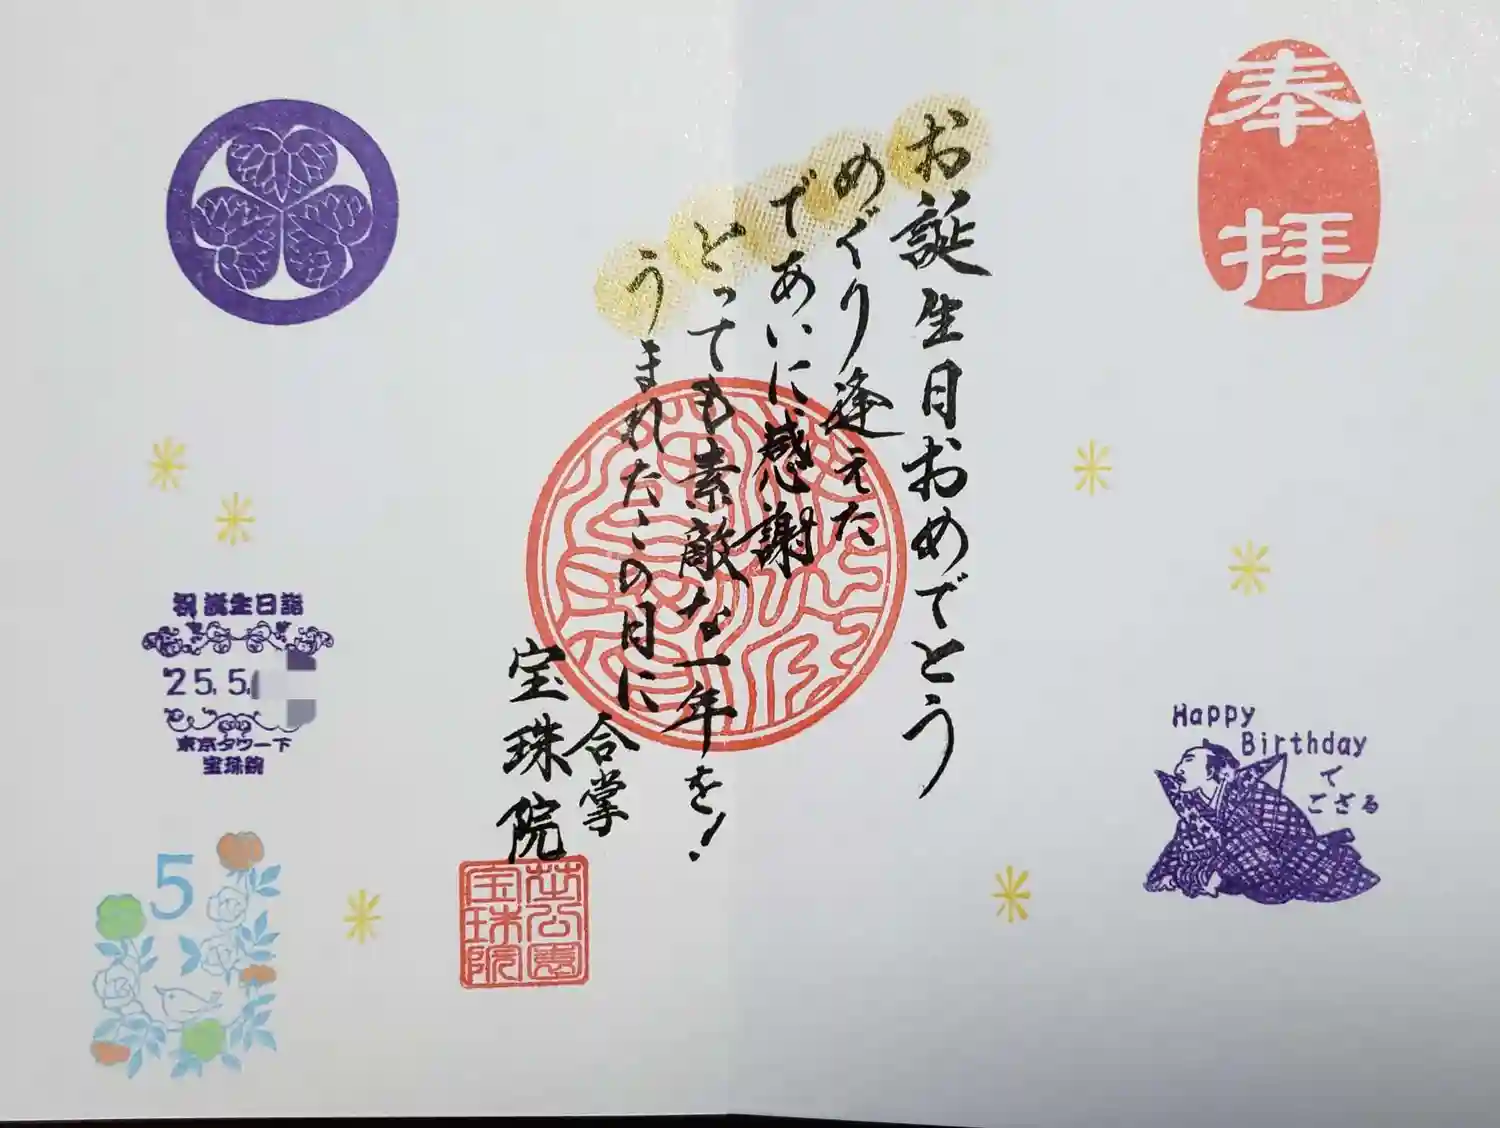 奉拝
お誕生日おめでとう
めぐり逢えた
であいに感謝
とっても素敵な一年を!
うまれたこの日に
合掌
宝珠院
Happy
Birthday
で
ござる
祝誕生日詣
'25.5.
東京タワー下
宝珠院
5
芝公園
宝珠院